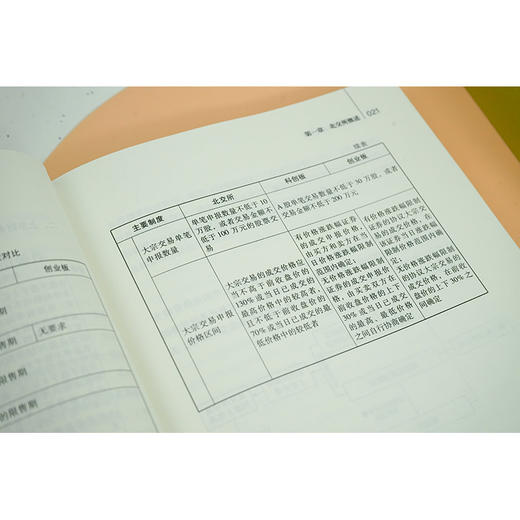 第一章 北交所概述 021
续表
主要制度 北交所 科创板 创业板
大宗交易单笔
申报数量
单笔申报数量不低于 10
万股，或者交易金额不
低于 100 万元的股票交
易
A 股单笔交易数量不低于 30 万股，或者
交易金额不低于 200 万元
大宗交易申报
价格区间
大宗交易的成交价格应
当不高于前收盘价的
130% 或当日已成交的
最高价格中的较高者，
且不低于前收盘价的
70% 或当日已成交的最
低价格中的较低者
有价格涨跌幅证券
的成交申报价格，
由买方和卖方在当
日价格涨跌幅限制
范围内确定；
无价格涨跌幅限制
证券的成交申报价
格，由买卖双方在
前收盘价格的上下
30% 或当日已成交
的最高、最低价格
之间自行协商确定
有价格涨跌幅限制
证券的协议大宗交
易的成交价格，在
该证券当日涨跌幅
限制价格范围内确
定；
无价格涨跌幅限制
的协议大宗交易的
成交价格，在前收
盘价的上下 30% 之
间确定
对比
创业板
售期
售期 无要求
售期
的限售期
的限售期